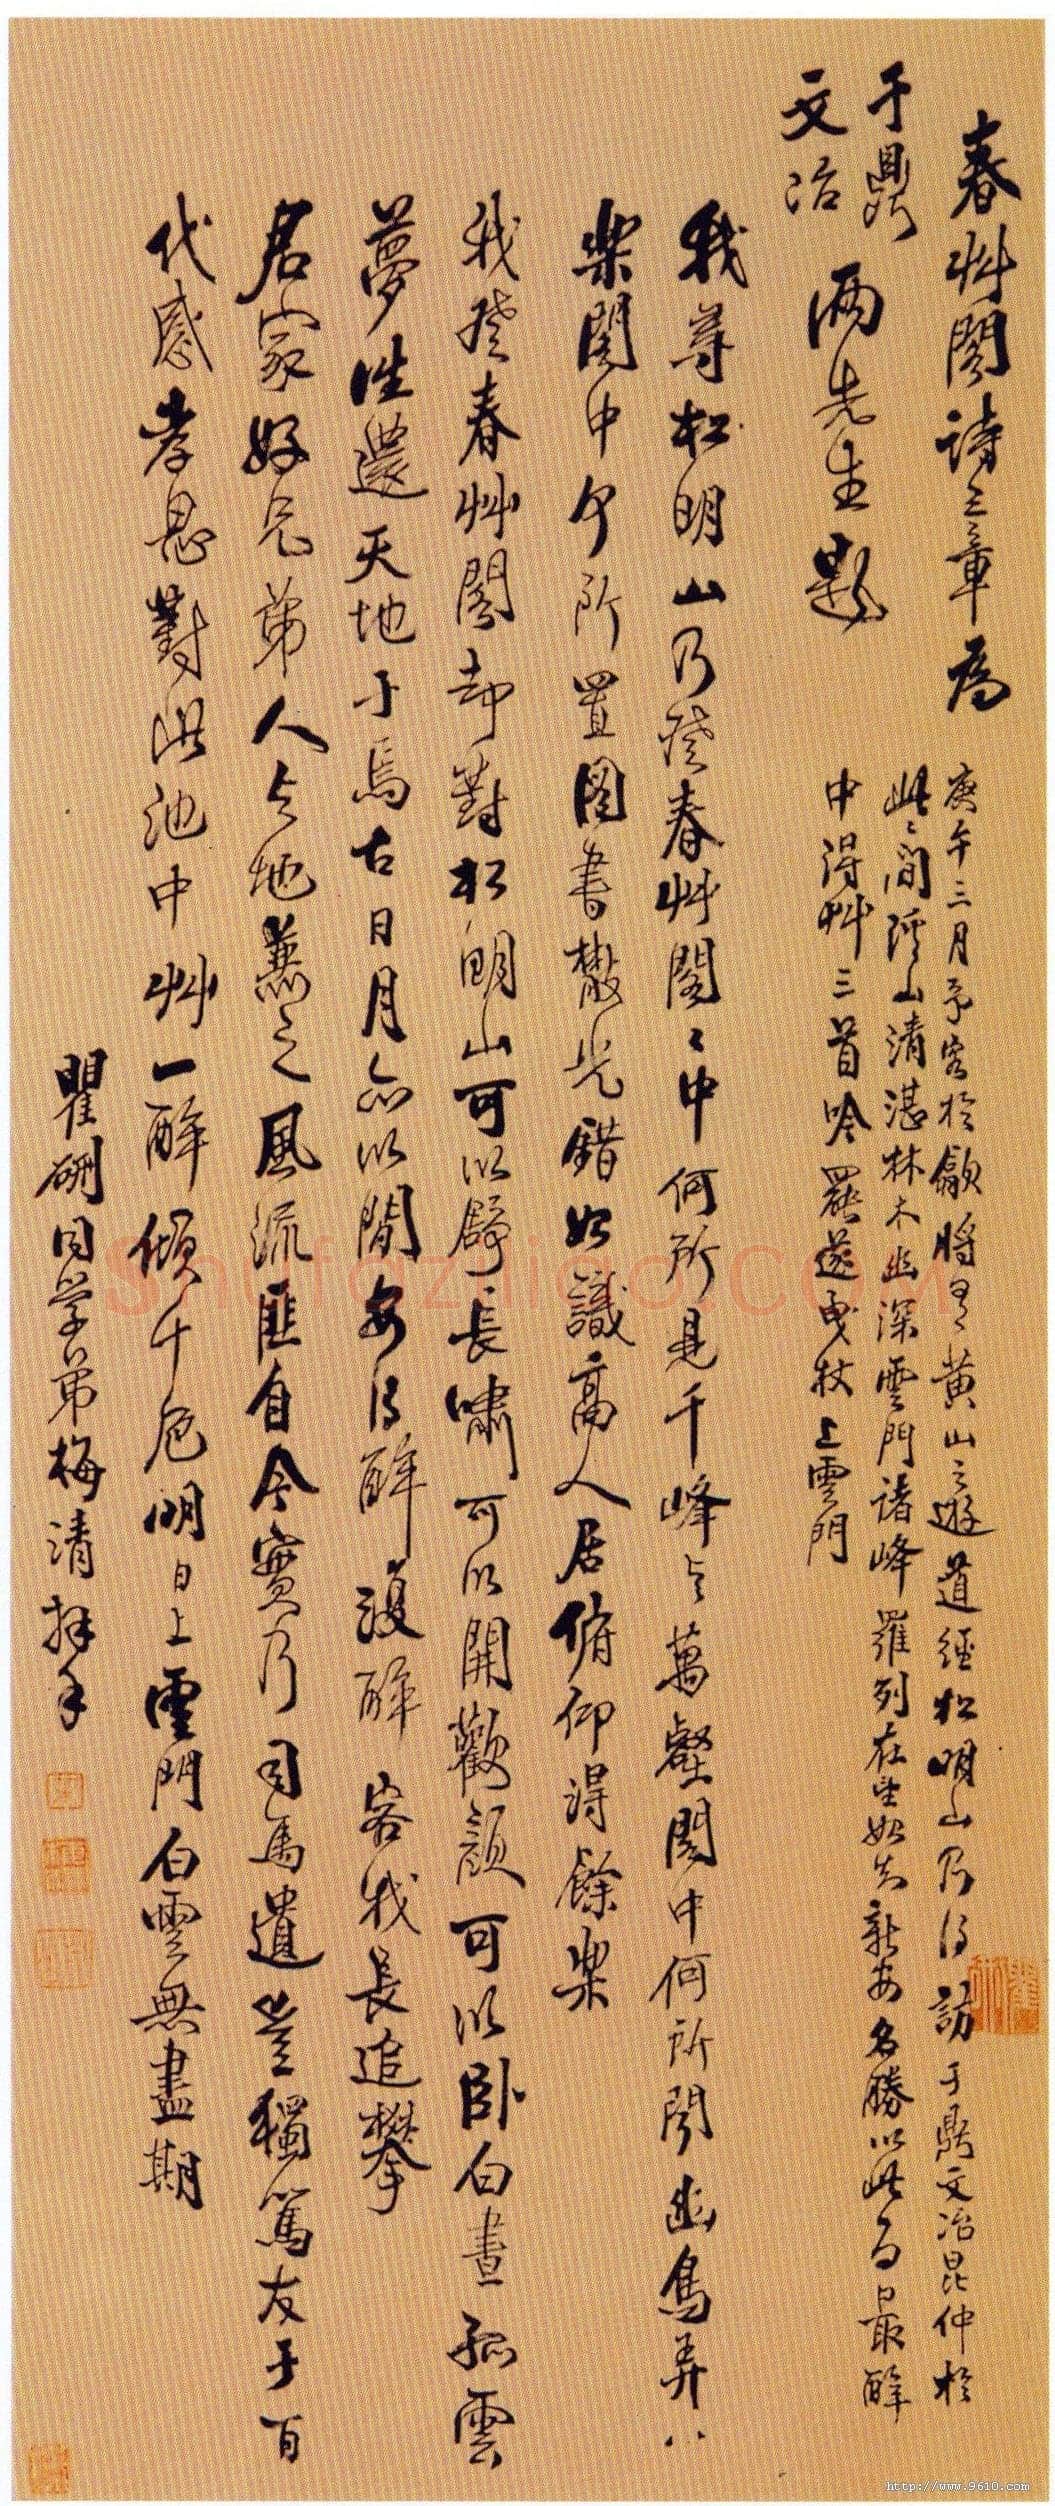 春艸閣詩三章為
于鼎
文冶
兩先生題
庚午三月予客於歙將有黃山之遊道經松明山乃得訪于鼎文冶昆仲於
此〻間溪山清湛林木幽深雲門諸峰羅列在望始知新安名勝以此為最醉
中得艸三首吟罷遂曳杖上雲門
我尋松明山乃登春艸閣〻中何所見千峰與萬壑閣中何所聞幽鳥弄
樂閣中何所置圖書散光錯始識高人居俯仰得餘樂
我登春艸閣却對松明山可以舒長嘯可以開歡顏可以臥白晝孤雲
夢往還天地于焉古日月亦以閒安得醉復醉容我長追攀
名家好兄弟人與地兼之風流匪自今實乃司馬遺豈獨篤友于百
代感孝思對此池中艸一醉傾千卮明日上雲門白雲無盡期
瞿硎同學弟梅清拜手
Shufaziliao.COM
http://www.9610.com